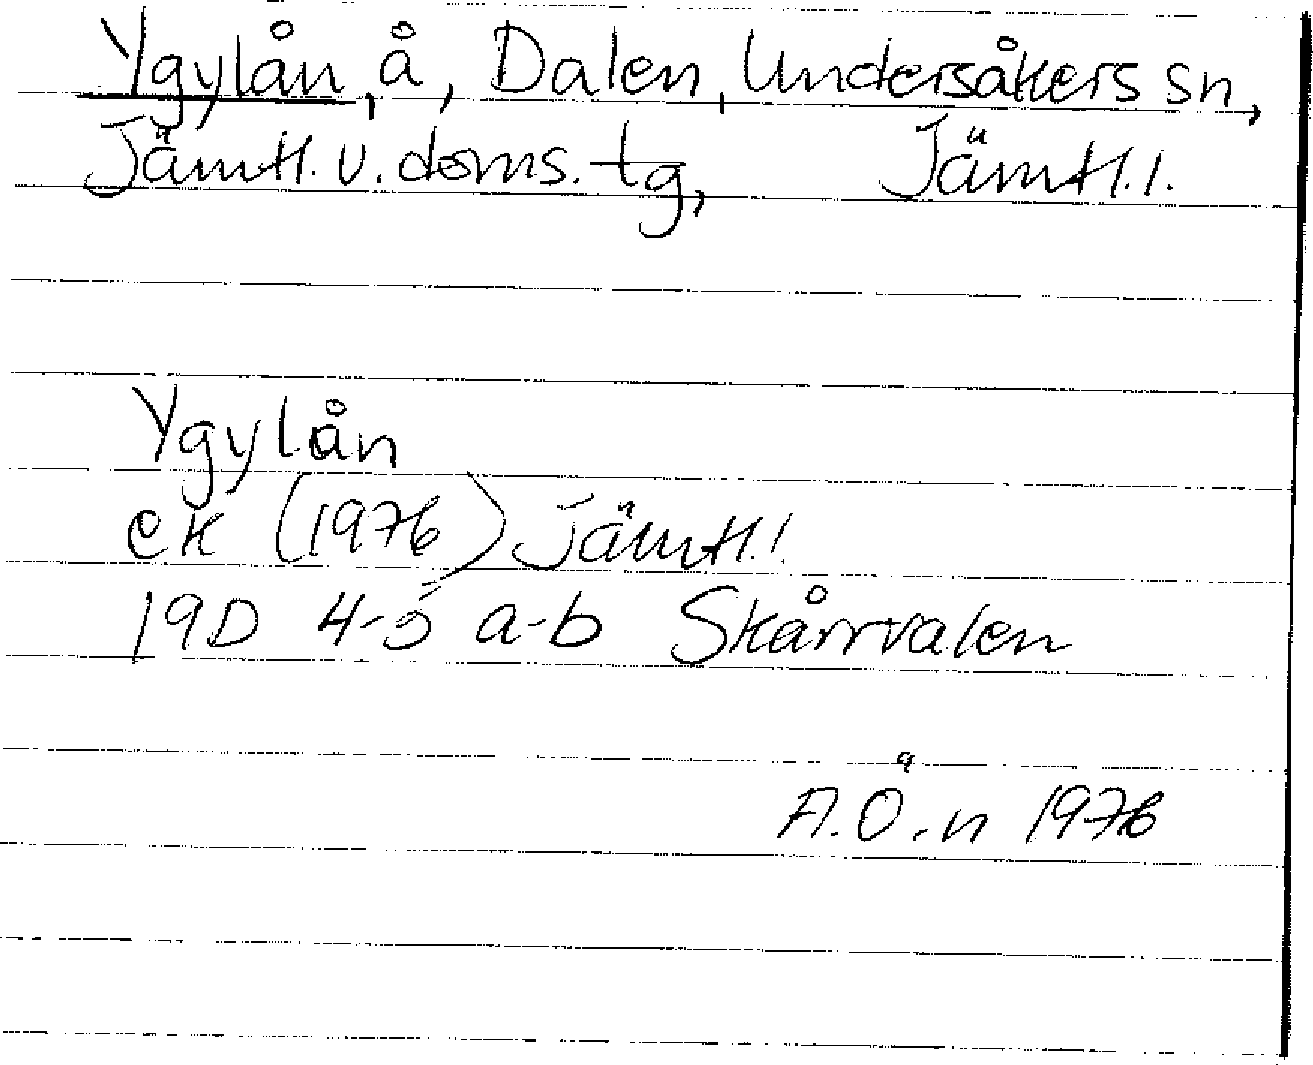 Ygylån, å, Dalen, Undersåkers sn,
Jämtl. v. doms. tg, Jämtl. l.
Ygylån
ek (1976) Jämtl. l
19D 4-5 a-b Skårrvalen
A.Ö.n 1976